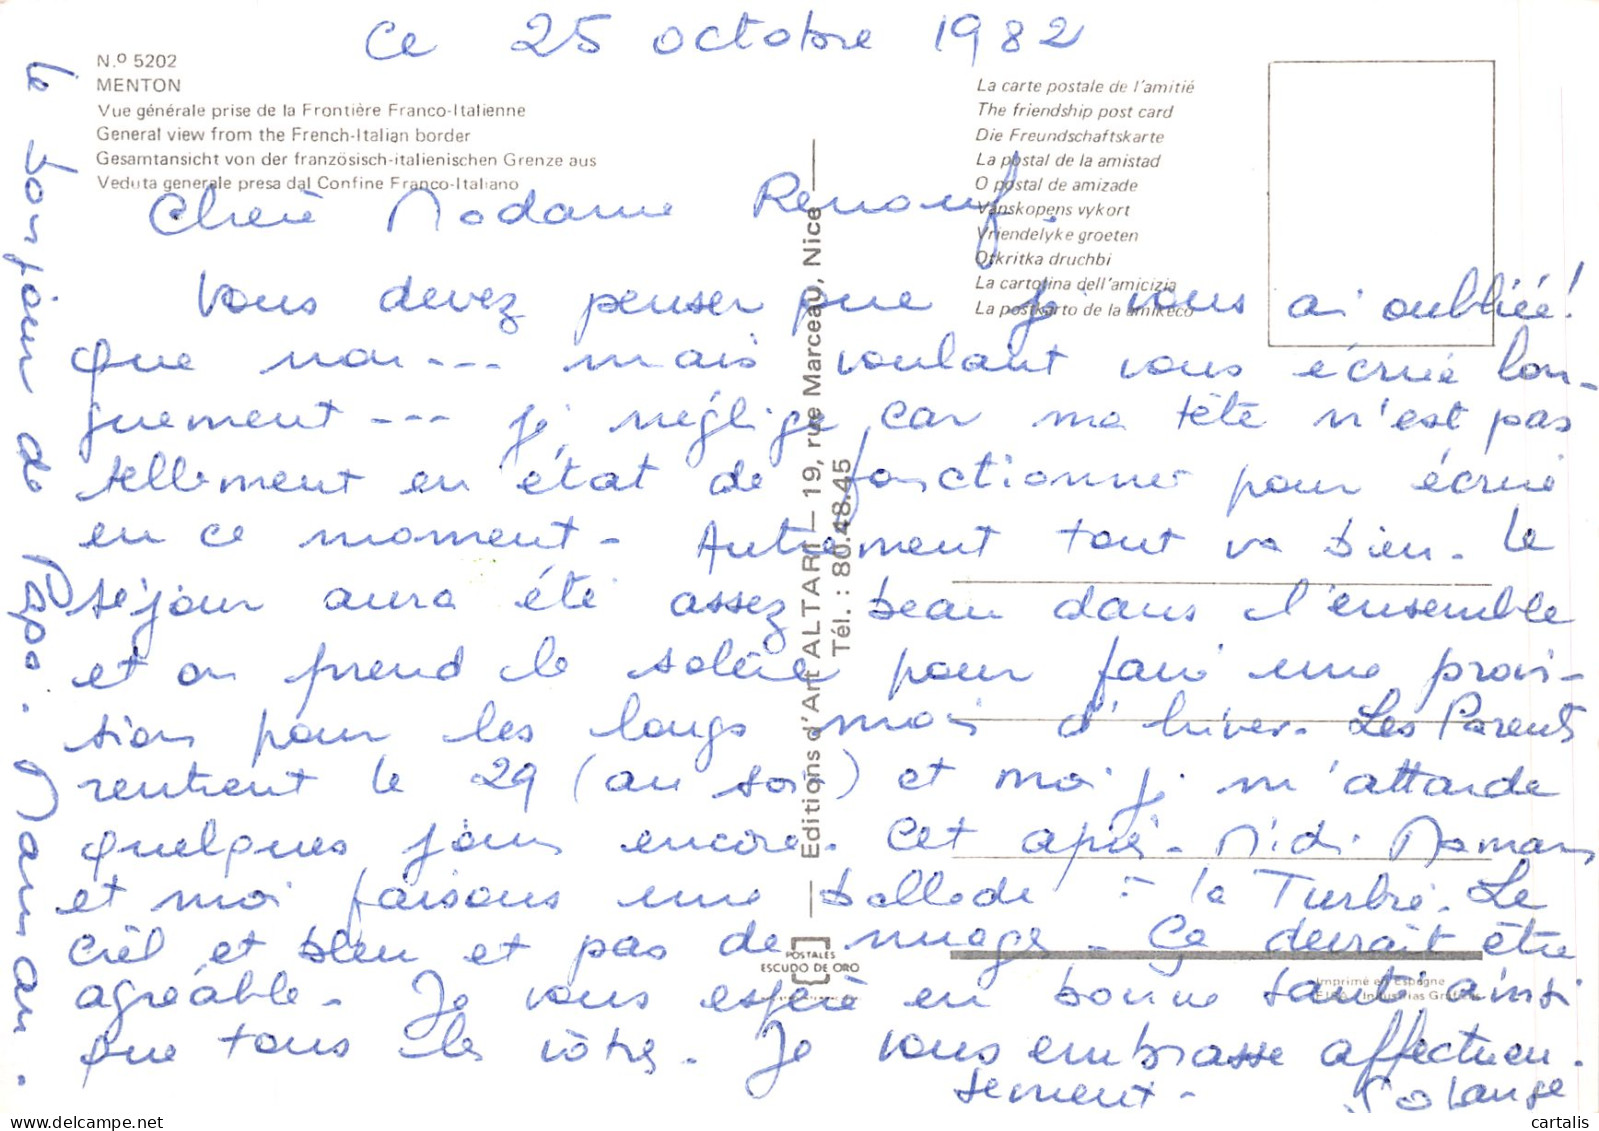 Ce 25 octobre 1982
N.º 5202
MENTON
Vue générale prise de la Frontière Franco-Italienne
General view from the French-Italian border
Gesamtansicht von der französisch-italienischen Grenze aus
Veduta generale presa dal Confine Franco-Italiano
La carte postale de l'amitié
The friendship post card
Die Freundschaftskarte
La postal de la amistad
O postal de amizade
Vänskopens vykort
Vriendelyke groeten
Otkritka druchbi
La cartolina dell'amicizia
La postkarto de la amikeco
Chère Madame Renouf.
Vous devez penser que je vous ai oubliée!
Que non --- mais voulant vous écrire lon-
guement --- je néglige car ma tête n'est pas
tellement en état de fonctionner pour écrire
en ce moment - Autrement tout va bien - Le
séjour aura été assez beau dans l'ensemble
et on prend le soleil pour faire une provi-
sion pour les longs mois d'hiver. Les Parents
rentrent le 29 (au soir) et moi je m'attarde
quelques jours encore. Cet après-Midi Maman
et moi faisons une ballade à la Turbie. Le
ciel et bleu et pas de nuage - Ça devrait être
agréable - Je vous espère en bonne santé ainsi
que tous les vôtres - Je vous embrasse affectueu-
sement - Solange
le bonjour de Papa. Maman.
Editions d'Art ALTARI - 19, rue Marceau, Nice
Tél. : 80.48.45
POSTALES
ESCUDO DE ORO
Imprimé en Espagne
cartalis
delcampe.net